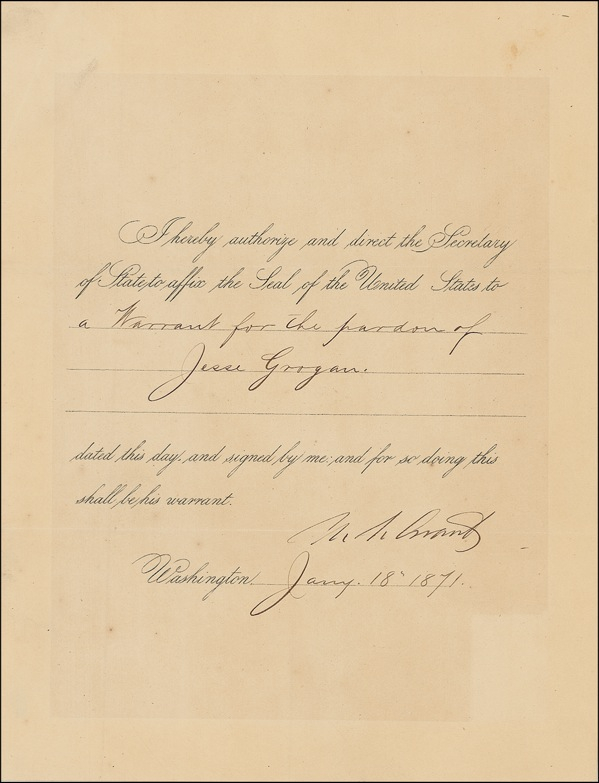 I hereby authorize and direct the Secretary
of State to affix the Seal of the United States to
a Warrant for the pardon of
Jesse Grogan.
dated this day, and signed by me; and for so doing this
shall be his warrant.
U. S. Grant
Washington Jany. 18" 1871.